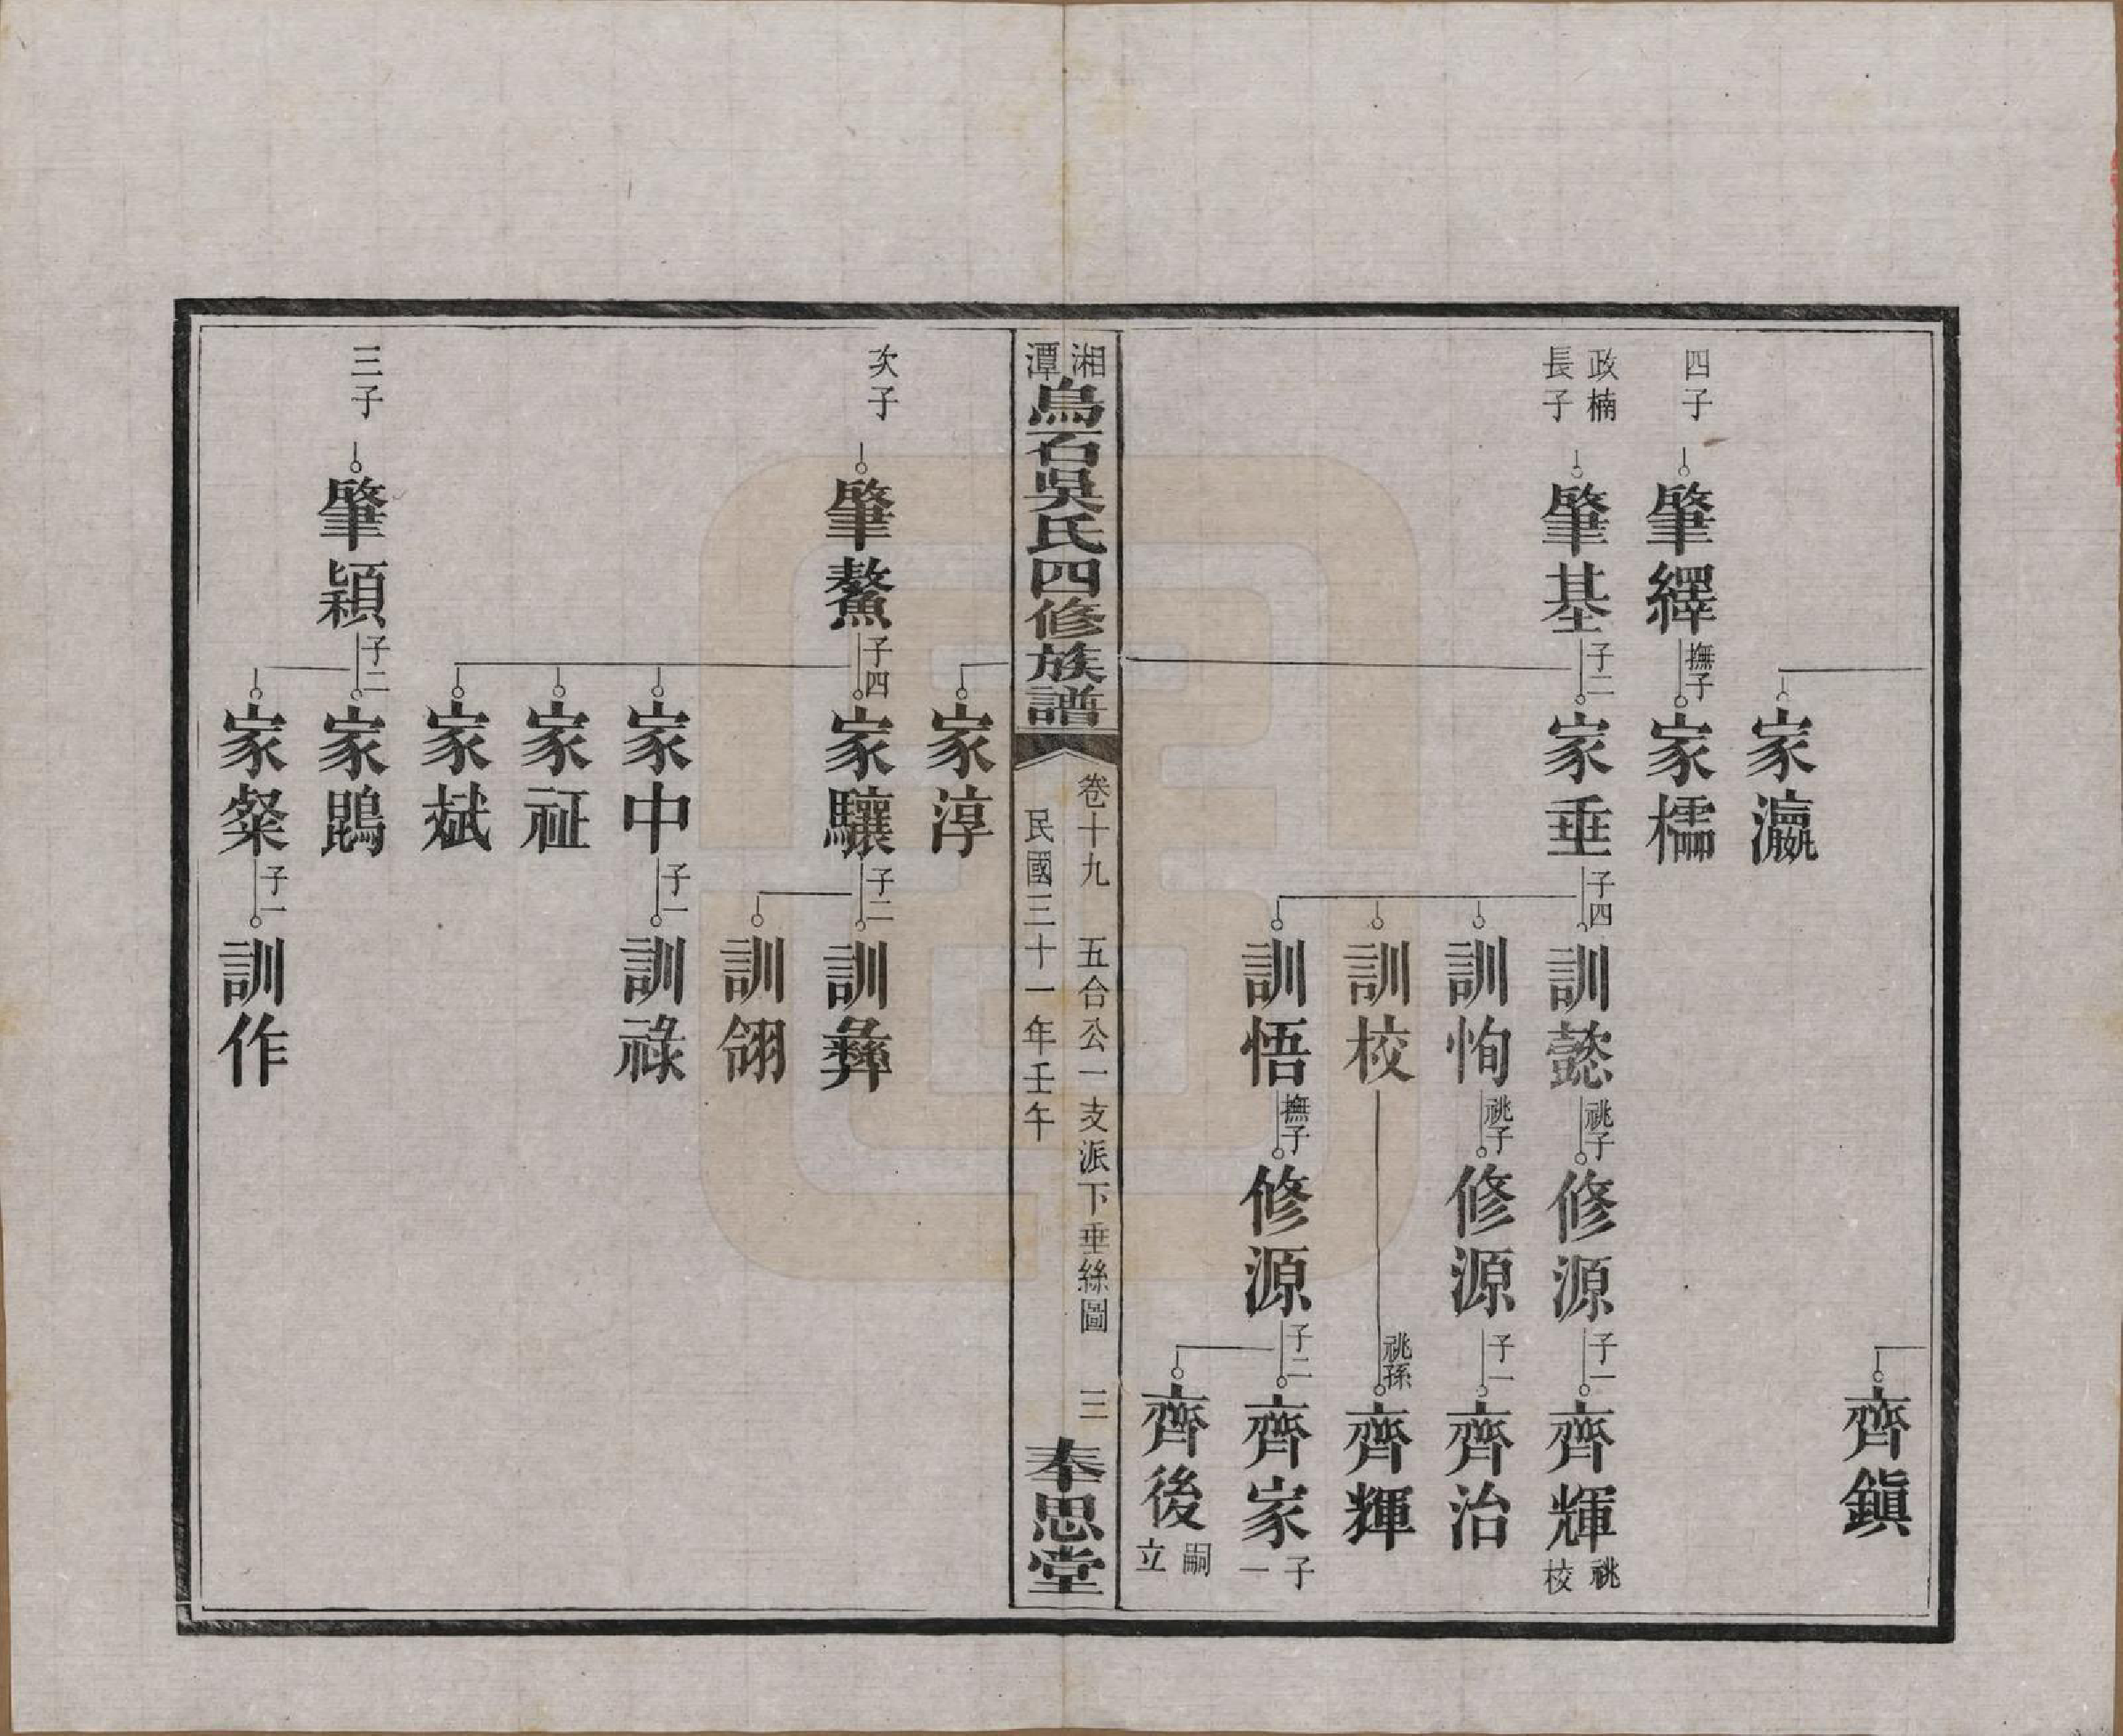 齊鎭
家瀛
四子
肇繹
撫子
家檽
政楠
長子
肇基
子二
家垂
子四
訓懿
祧子
修源
子一
齊輝
祧
校
訓恂
祧子
修源
子一
齊治
訓校
祧孫
齊輝
訓悟
撫子
修源
子二
齊家
子
一
齊後
嗣
立
湘潭烏石吳氏四修族譜
卷十九 五合公一支派下垂絲圖 三
民國三十一年壬午
奉思堂
家淳
次子
肇鰲
子四
家驤
子二
訓彝
訓翎
家中
子一
訓祿
家祉
家斌
三子
肇穎
子二
家鵾
家粲
子一
訓作